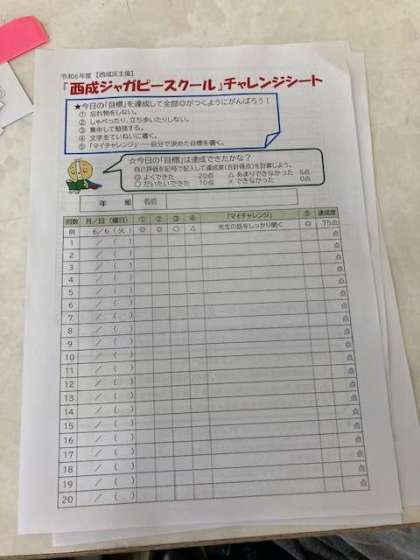 令和6年度 【西成区主催】
「西成ジャガピースクール」チャレンジシート
★今日の「目標」を達成して全部◎がつくようにがんばろう！
① 忘れ物をしない。
② しゃべったり、立ち歩いたりしない。
③ 集中して勉強する。
④ 文字をていねいに書く。
⑤ 「マイチャレンジ」…自分で決めた目標を書く。
☆今日の「目標」は達成できたかな？
自己評価を記号で記入して達成度(合計得点)を計算しよう。
◎ よくできた 20点 △ あまりできなかった 5点
○ だいたいできた 10点 × できなかった 0点
年 組 名前
回数 月／日（曜日） ① ② ③ ④ 「マイチャレンジ」 ⑤ 達成度
例 6／6（火） ◎ ◎ ○ △ 先生の話をしっかり聞く ◎ 75点
1 ／ （ ） 点
2 ／ （ ） 点
3 ／ （ ） 点
4 ／ （ ） 点
5 ／ （ ） 点
6 ／ （ ） 点
7 ／ （ ） 点
8 ／ （ ） 点
9 ／ （ ） 点
10 ／ （ ） 点
11 ／ （ ） 点
12 ／ （ ） 点
13 ／ （ ） 点
14 ／ （ ） 点
15 ／ （ ） 点
16 ／ （ ） 点
17 ／ （ ） 点
18 ／ （ ） 点
19 ／ （ ） 点
20 ／ （ ） 点